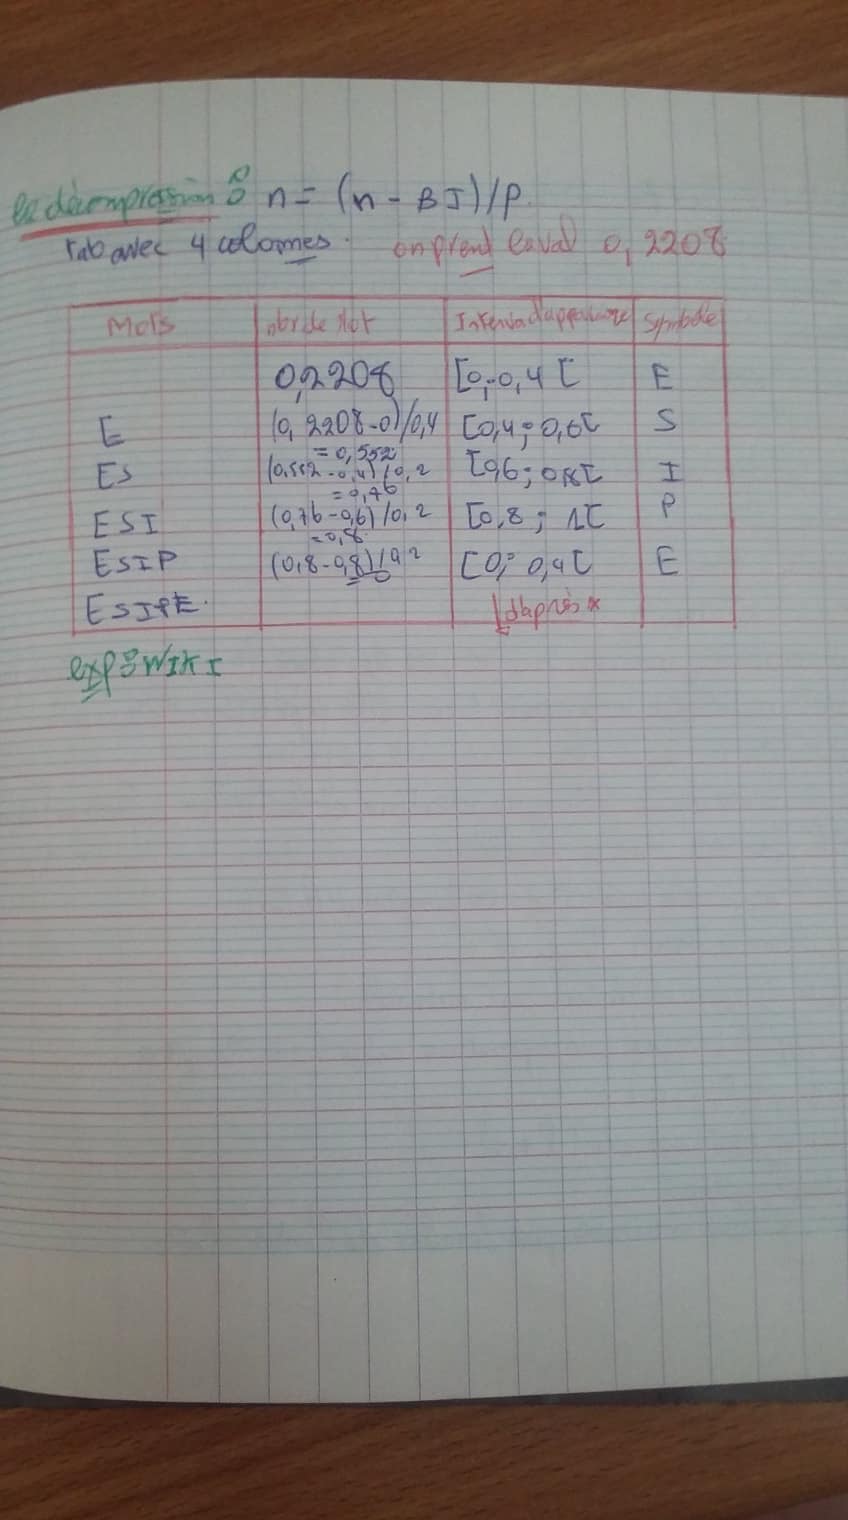 la décompression : n = (n - BI)/P.
Tab avec 4 colonnes. on prend la val 0,2208
Mots nbr de flot Interval d'appartenance Symbole
0,2208 [0;0,4[ E
E (0,2208-0)/0,4 [0,4;0,6[ S
= 0,552
ES (0,552-0,4)/0,2 [0,6;0,8[ I
= 0,76
ESI (0,76-0,6)/0,2 [0,8; 1[ P
= 0,8
ESIP (0,8-0,8)/0,2 [0; 0,4[ E
= 0
ESIPE. d'après *
exp: WIKI